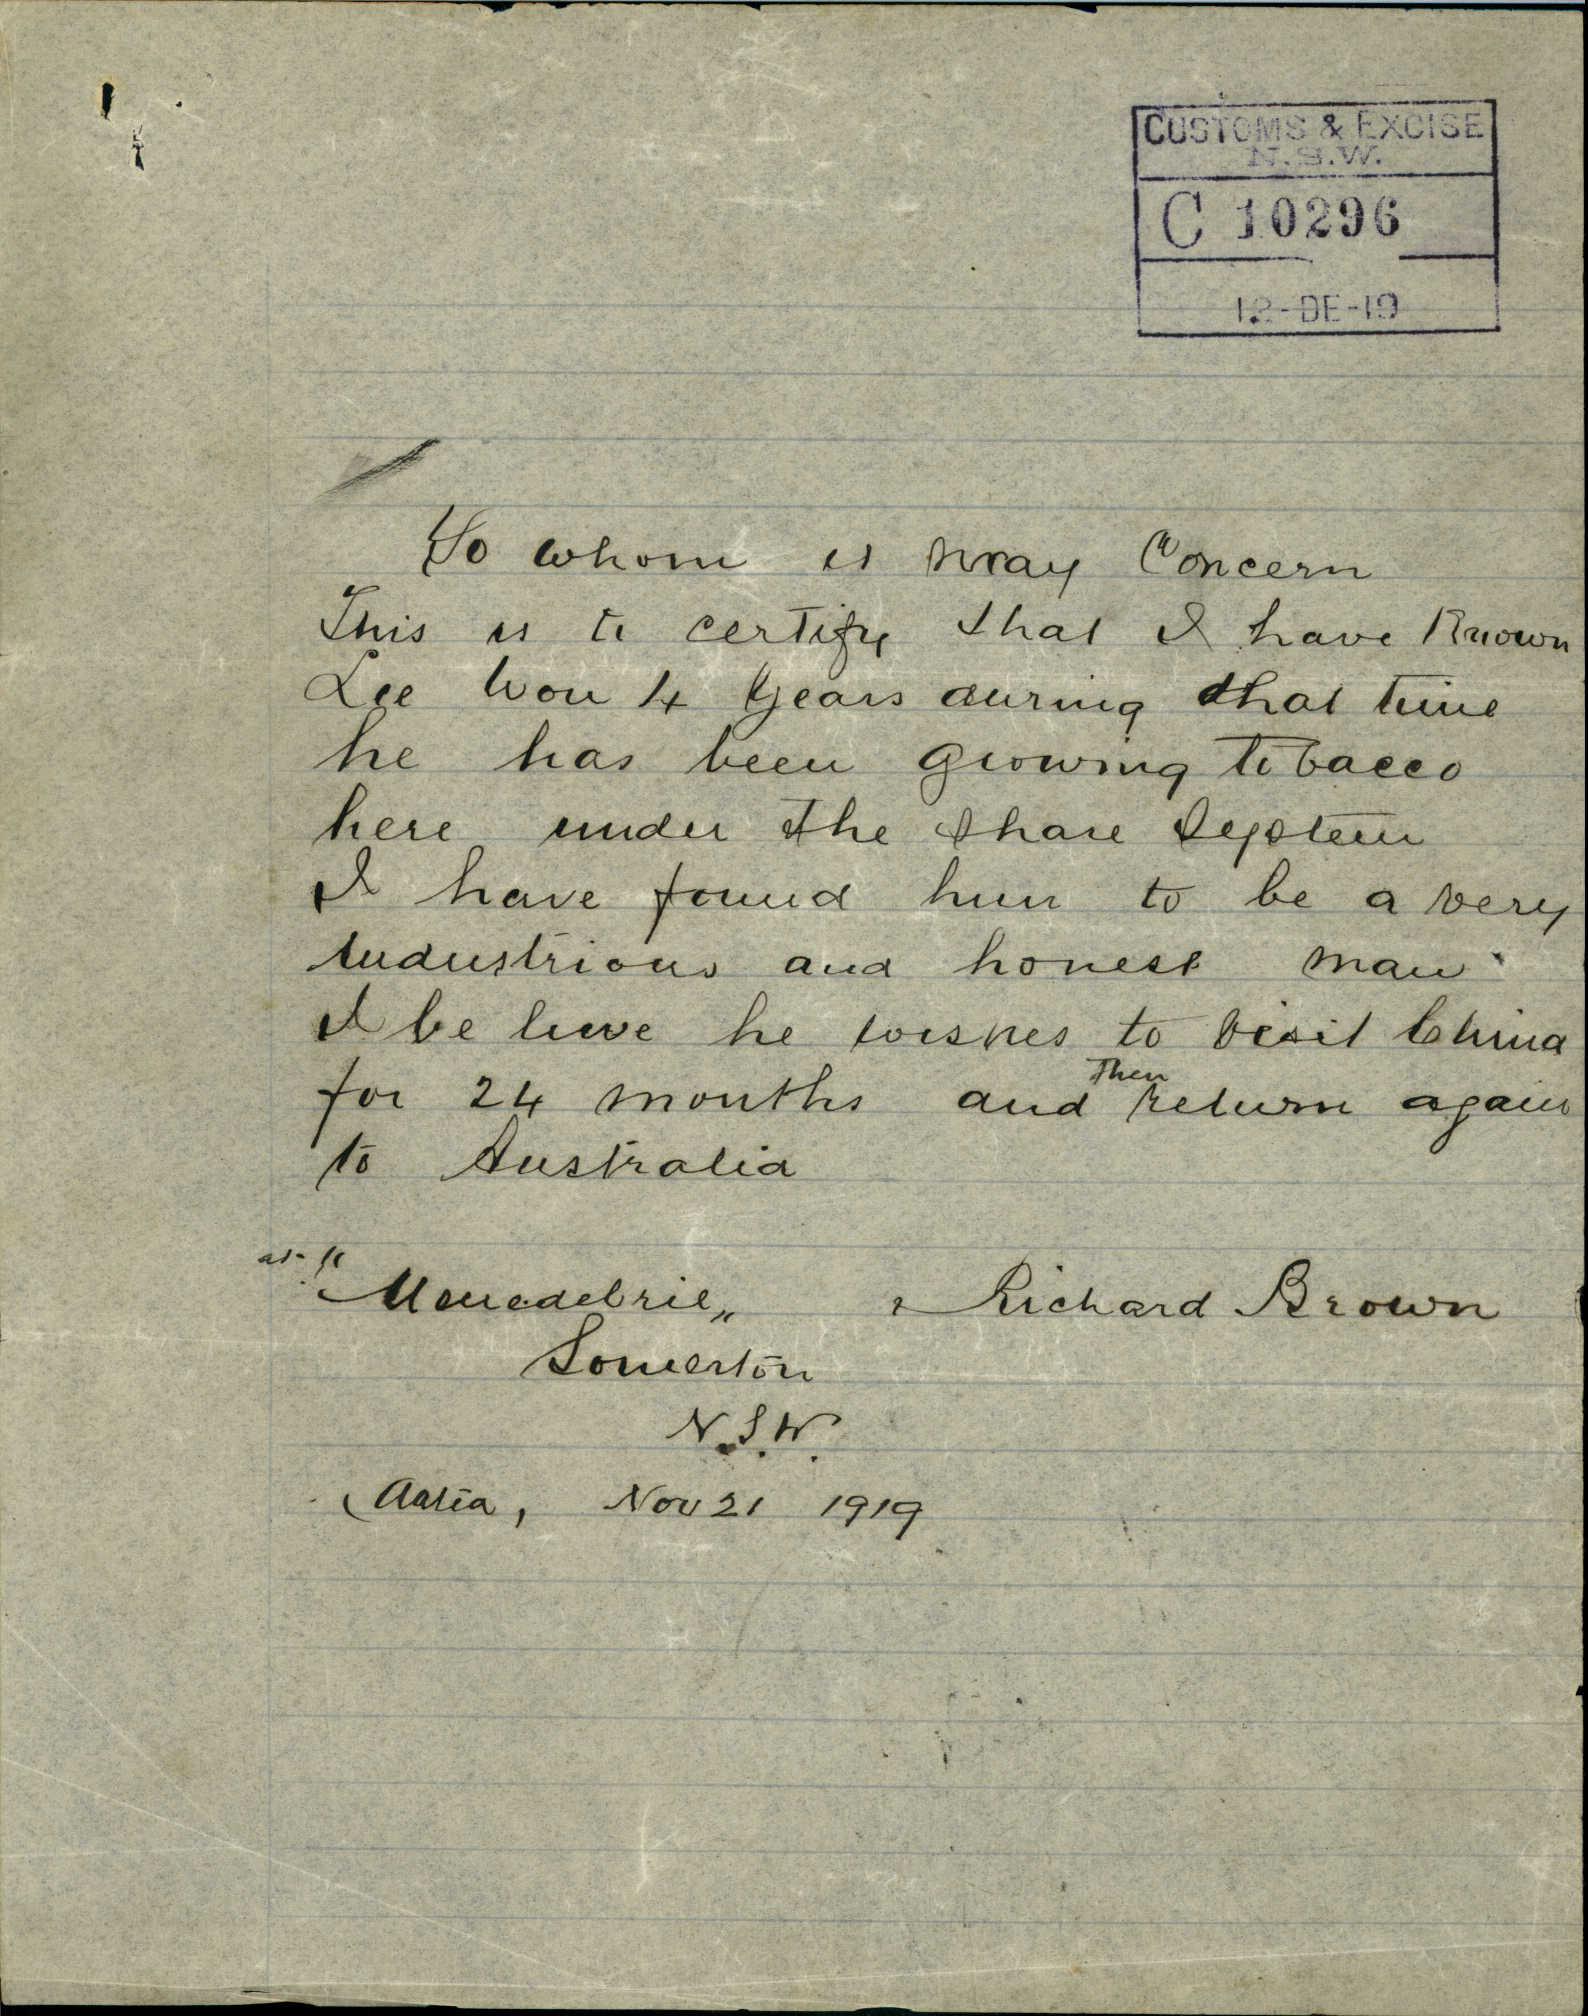 CUSTOMS & EXCISE
N.S.W.
C 10296
12-DE-19
To whom it may Concern
This is to certify that I have Known
Lee Wou 4 years during that time
he has been growing tobacco
here under the share system
I have found him to be a very
industrious and honest man
I be lieve he wishes to visit China
for 24 months and then return again
to Australia
at "Menedebrie" Richard Brown
Somerton
N.S.W.
Nov 21 1919